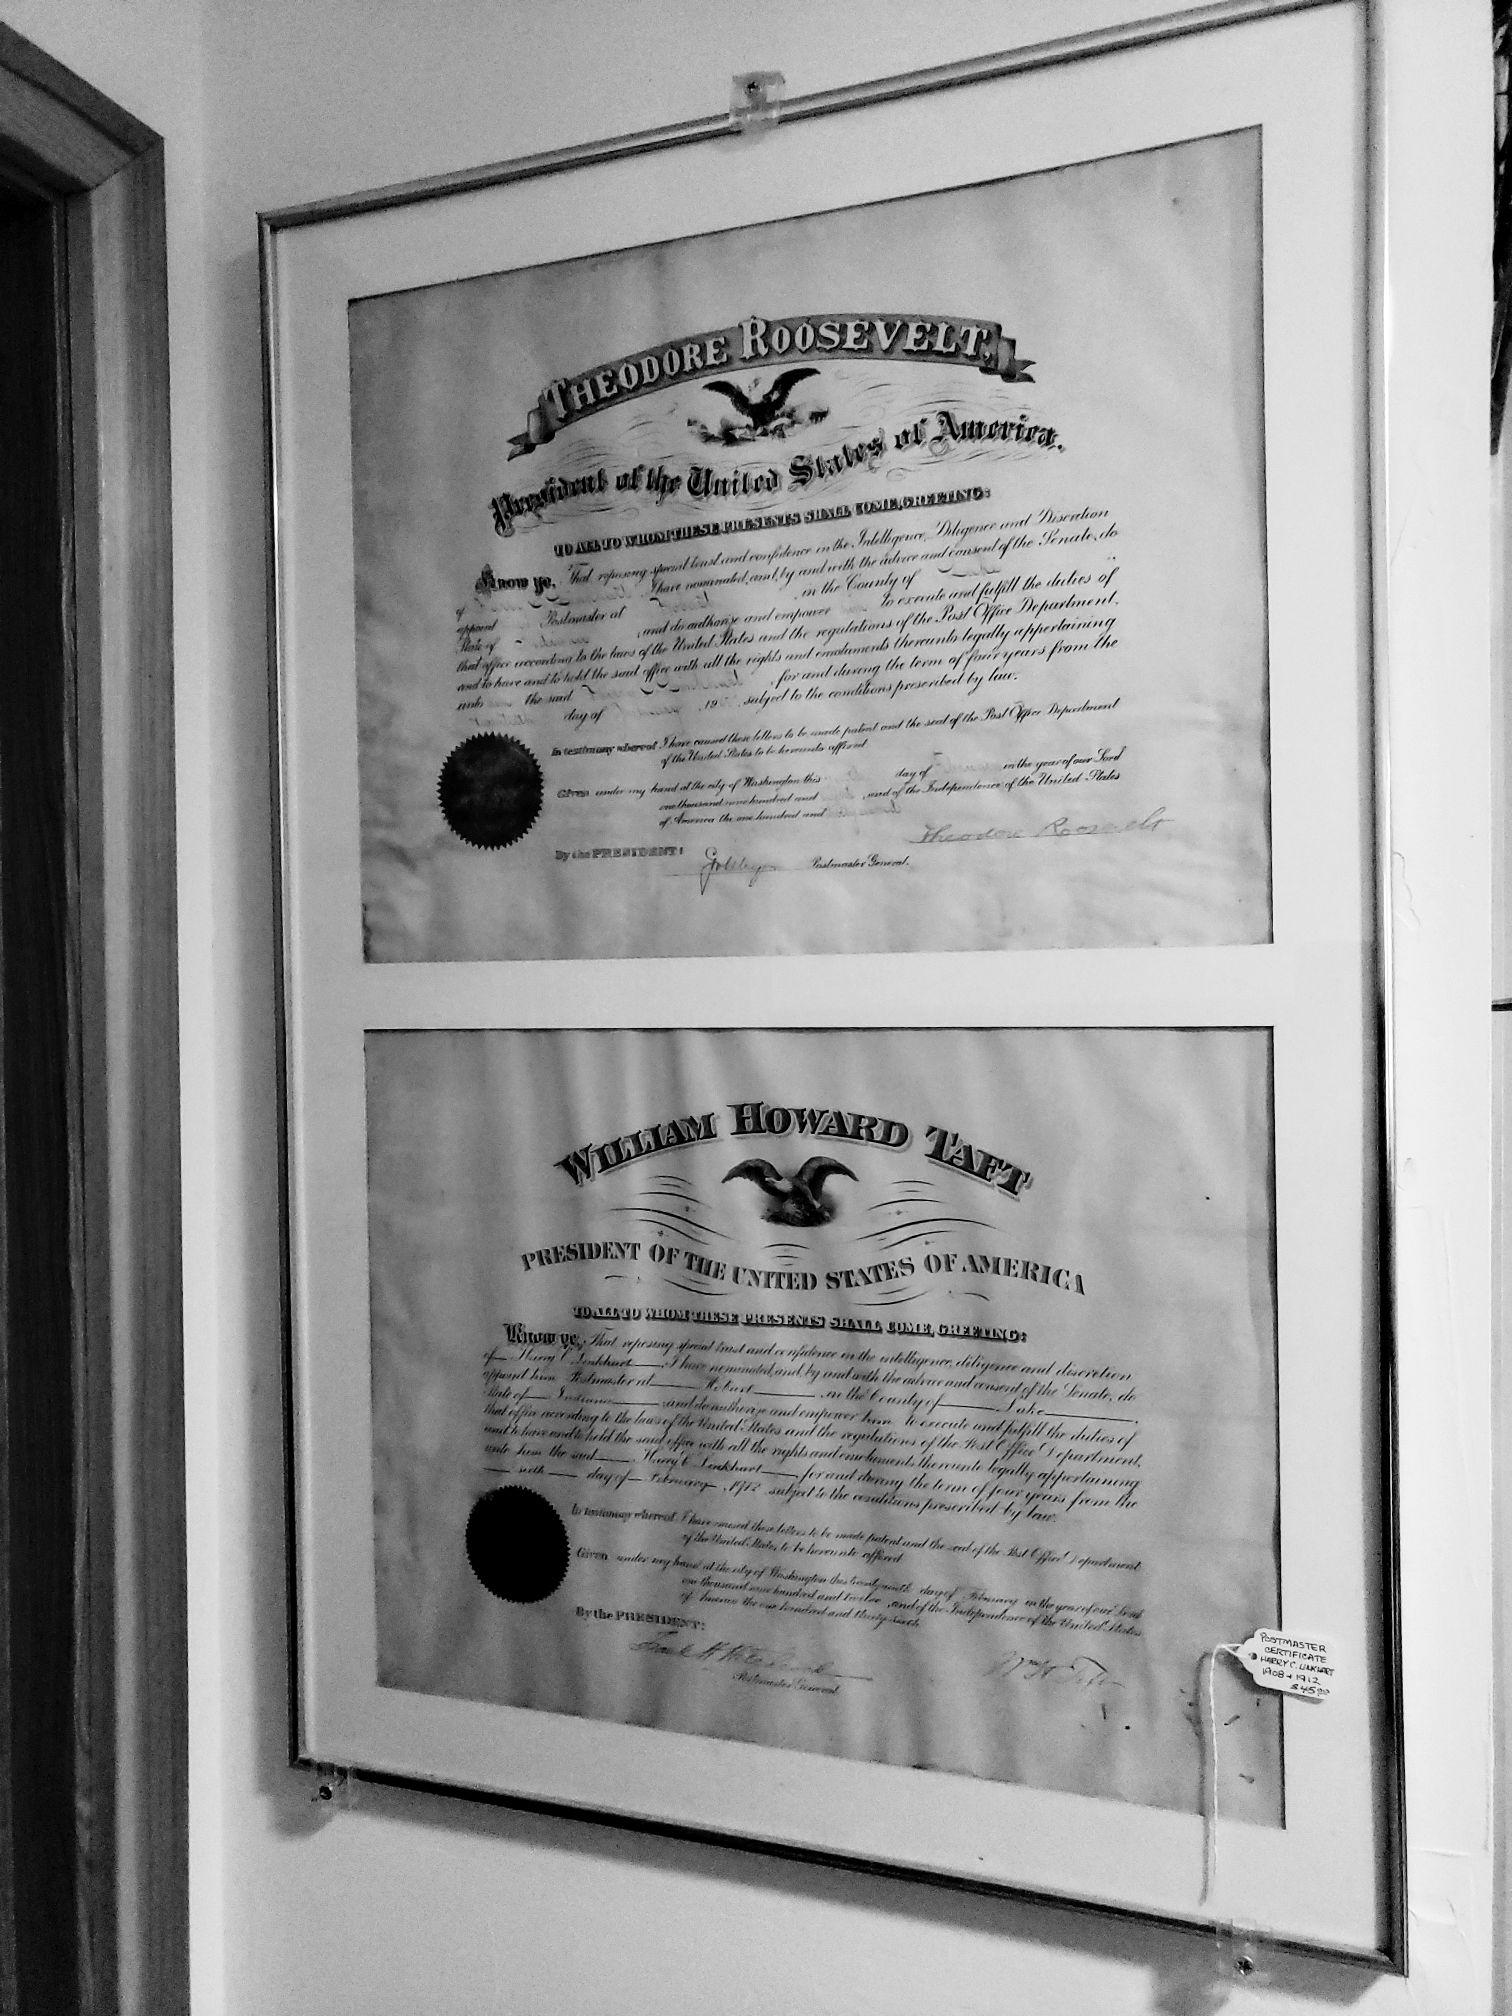 THEODORE ROOSEVELT,
President of the United States of America.
TO ALL TO WHOM THESE PRESENTS SHALL COME, GREETING:
Know ye, That reposing special trust and confidence in the Intelligence, Diligence and Discretion
of I have nominated, and, by and with the advice and consent of the Senate, do
appoint Postmaster at in the County of
State of , and do authorize and empower to execute and fulfill the duties of
that office according to the laws of the United States and the regulations of the Post Office Department,
and to have and to hold the said office with all the rights and emoluments thereunto legally appertaining
unto the said , for and during the term of four years from the
day of , 19 , subject to the conditions prescribed by law.
In testimony whereof I have caused these letters to be made patent and the seal of the Post Office Department
of the United States to be hereunto affixed
Given under my hand at the city of Washington this day of in the year of our Lord
one thousand nine hundred and , and of the Independence of the United States
of America the one hundred and
Theodore Roosevelt
By the PRESIDENT:
Postmaster General.
WILLIAM HOWARD TAFT
PRESIDENT OF THE UNITED STATES OF AMERICA
TO ALL TO WHOM THESE PRESENTS SHALL COME, GREETING:
Know ye, That reposing special trust and confidence in the intelligence, diligence and discretion
of Harry C Linkhart, I have nominated, and, by and with the advice and consent of the Senate, do
appoint him Postmaster at Hobart, in the County of Lake,
State of Indiana, and do authorize and empower him to execute and fulfill the duties of
that office according to the laws of the United States and the regulations of the Post Office Department,
and to have and to hold the said office with all the rights and emoluments thereunto legally appertaining
unto him the said Harry C Linkhart, for and during the term of four years from the
sixth day of February, 1912 subject to the conditions prescribed by law.
In testimony whereof I have caused these letters to be made patent and the seal of the Post Office Department
of the United States to be hereunto affixed
Given under my hand at the city of Washington this day of February in the year of our Lord
one thousand nine hundred and twelve, and of the Independence of the United States
of America the one hundred and thirty-sixth
By the PRESIDENT:
Frank H Hitchcock
Wm H Taft
Postmaster General
POSTMASTER
CERTIFICATE
HARRY C. LINKHART
1908 + 1912
$45.00